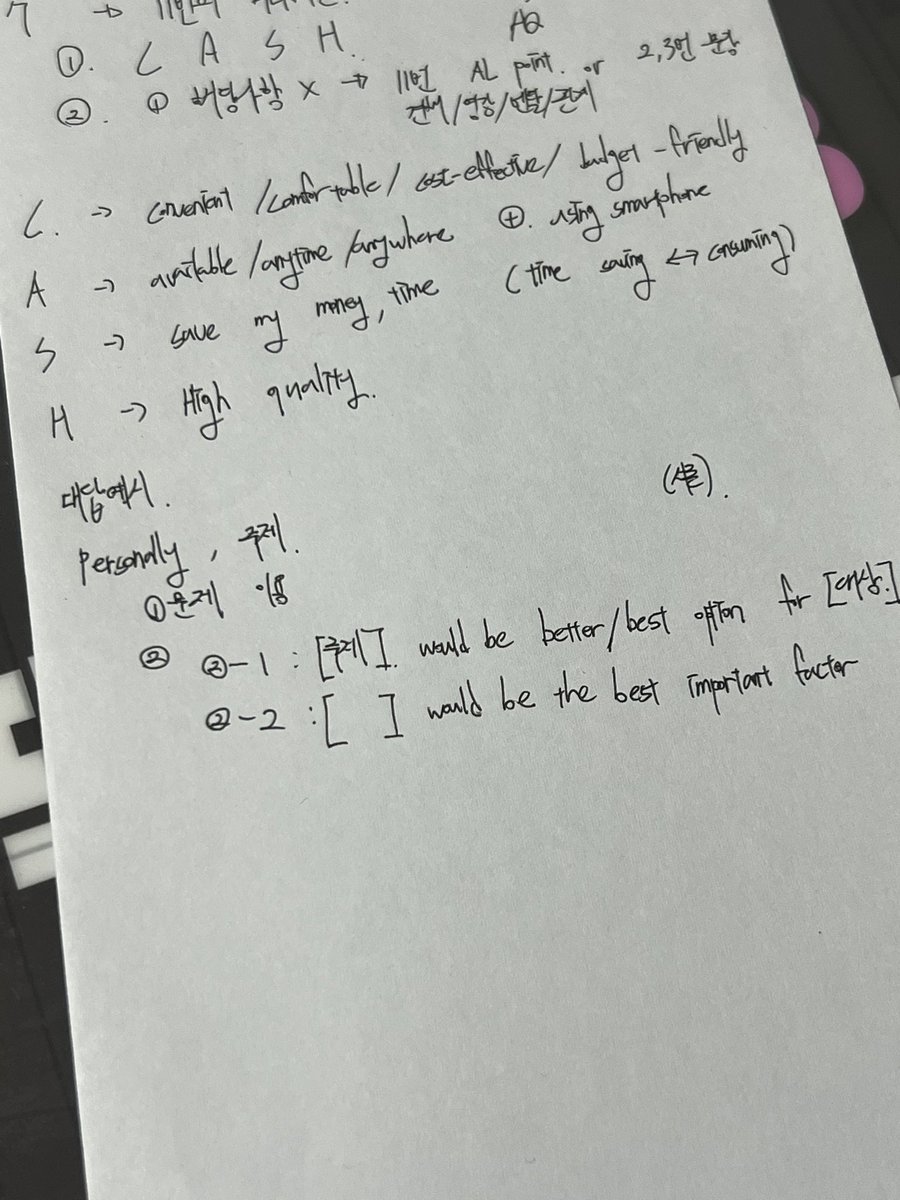 7 → 11번
①. C A S H. AQ
②. ① 해당사항 X → 11번 AL point. or 2,3번 문장
건버/영향/멘탈/관계
C. → convenient /comfortable/ cost-effective/ budget-friendly
A → available /anytime /anywhere ⊕. using smartphone
S → save my money, time (time saving ↔ consuming)
H → High quality.
대답예시. (서론).
Personally, 주제.
①문제 이용
② ②-1 : [주제]. would be better/best option for [대상.]
②-2 : [ ] would be the best important factor